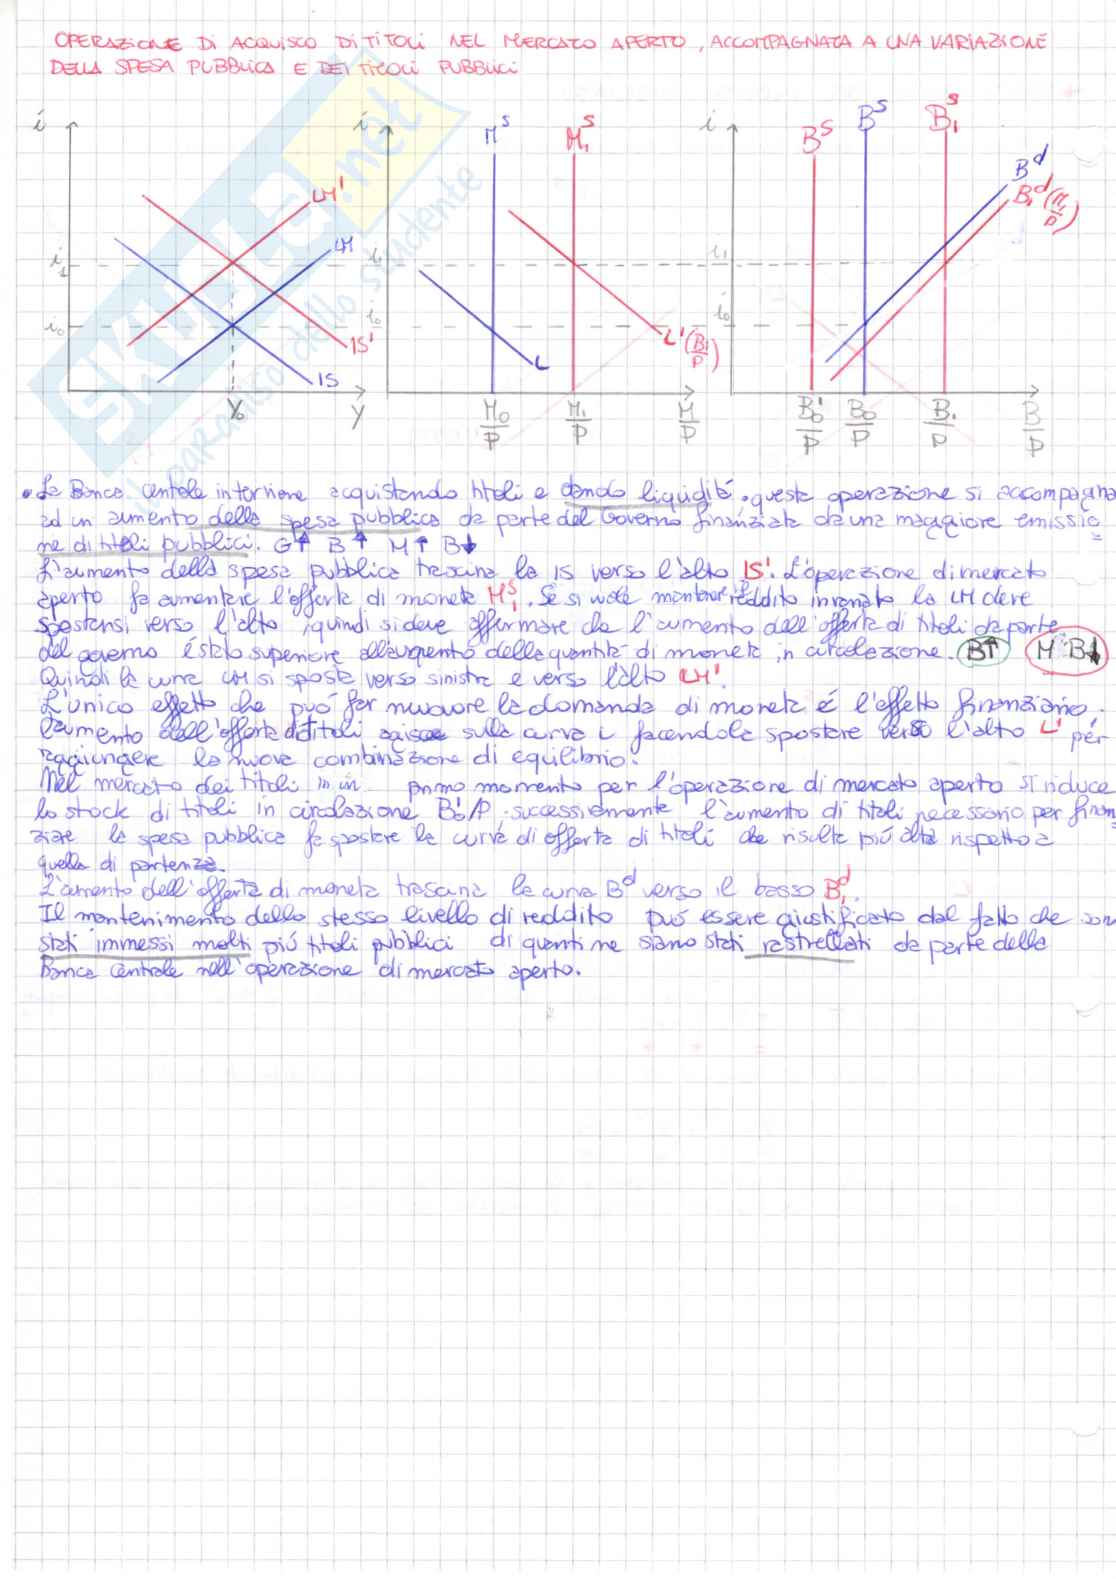 OPERAZIONE DI ACQUISTO DI TITOLI NEL MERCATO APERTO, ACCOMPAGNATA A UNA VARIAZIONE
DELLA SPESA PUBBLICA E DEI TITOLI PUBBLICI
i i i
M^s M₁^s B^s B^s B₁^s
LM' LM IS' IS
L L'(B₁/P)
B^d B₁^d(M₁/P)
i₁ i₁ i₁
i₀ i₀ i₀
Y₀ Y M₀/P M₁/P M/P B₀'/P B₀/P B₁/P B/P
SKUOLA.net
il paradiso dello studente
• La Banca centrale interviene acquistando titoli e dando liquidità, questa operazione si accompagna
ad un aumento della spesa pubblica da parte del Governo finanziata da una maggiore emissio
ne di titoli pubblici. G↑ B↑ M↑ B↓
L'aumento della spesa pubblica trascina la IS verso l'alto IS'. L'operazione di mercato
aperto fa aumentare l'offerta di moneta M₁^s. Se si vuole mantenere il reddito invariato la LM deve
spostarsi verso l'alto, quindi si deve affermare che l'aumento dell'offerta di titoli da parte
del governo é stato superiore all'aumento della quantità di moneta in circolazione. B↑ M B↓
Quindi la curva LM si sposta verso sinistra e verso l'alto LM'.
L'unico effetto che può far muovere la domanda di moneta é l'effetto finanziario.
L'aumento dell'offerta di titoli agisce sulla curva L facendola spostare verso l'alto L' per
raggiungere la nuova combinazione di equilibrio.
Nel mercato dei titoli in un primo momento per l'operazione di mercato aperto si riduce
lo stock di titoli in circolazione B₀'/P, successivamente l'aumento di titoli necessario per finan
ziare la spesa pubblica fa spostare la curva di offerta di titoli che risulta più alta rispetto a
quella di partenza.
L'aumento dell'offerta di moneta trascina la curva B^d verso il basso B₁^d.
Il mantenimento dello stesso livello di reddito può essere giustificato dal fatto che son
stati immessi molti più titoli pubblici di quanti ne siano stati rastrellati da parte della
Banca centrale nell'operazione di mercato aperto.